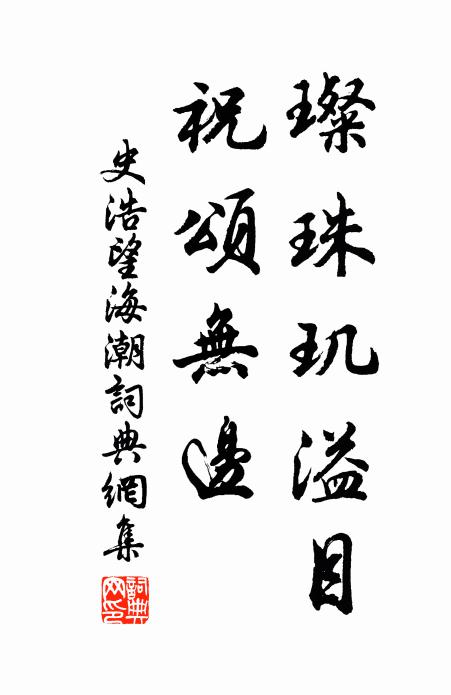 璨珠玑溢目
祝頌無邊
史浩望海潮詞典網集
詞典网印